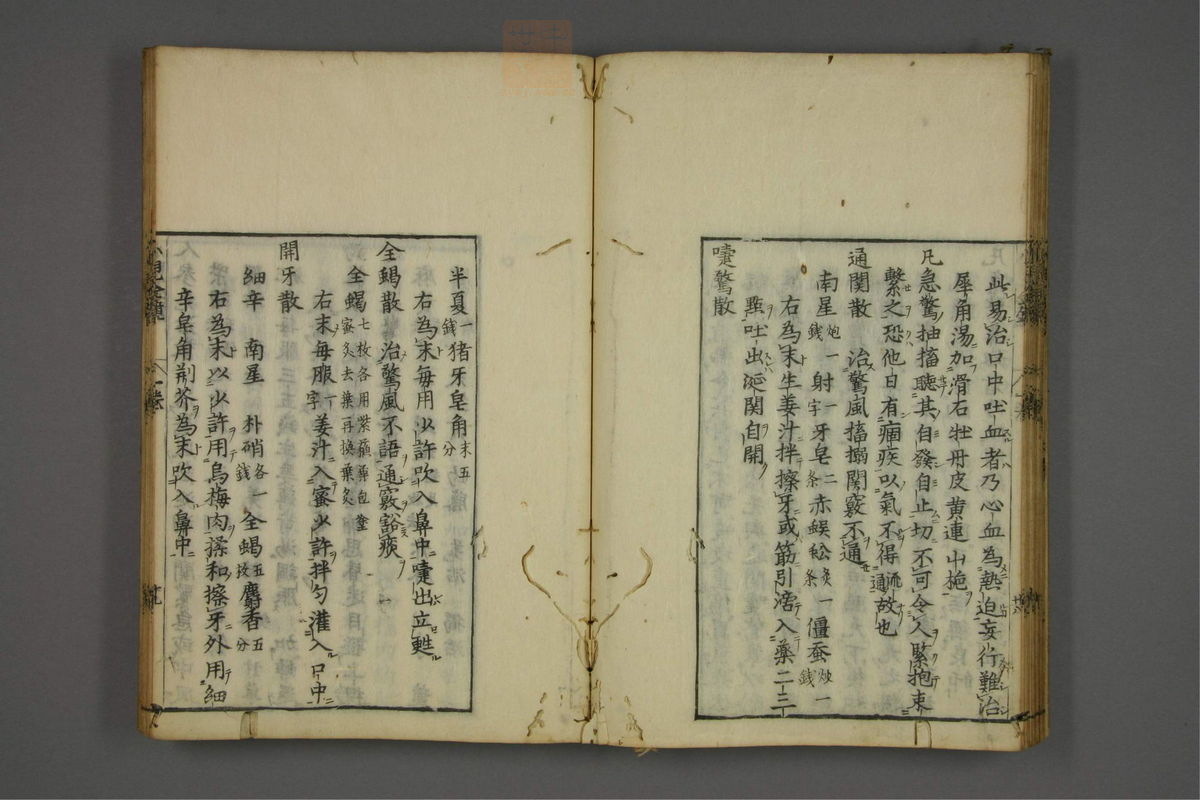 此易治口中吐血者乃心血為熱迫妄行難治
犀角湯加滑石牡丹皮黄連山梔
凡急驚抽搐聽其自發自止切不可令人緊抱束
繫之恐他日有痼疾以氣不得流通故也
通関散　治驚風搐搦関竅不通
南星炮一錢射一字牙皂二条赤蜈蚣炙一条僵蚕炒一錢
右為末生姜汁拌擦牙或筋引濡入藥二三
點吐出涎関自開
嚏驚散
半夏一錢猪牙皂角末五分
右為末毎用少許吹入鼻中嚏出立甦
全蝎散　治驚風不語通竅豁痰
全蝎七枚各用紫蘓葉包塗蜜炙去葉再換葉炙
右末毎服一字姜汁入蜜少許拌匀灌入口中
開牙散
細辛　南星　朴硝各一錢全蝎五枚麝香五分
右為末以少許用烏梅肉揉和擦牙外用細
辛皂角荆芥為末吹入鼻中